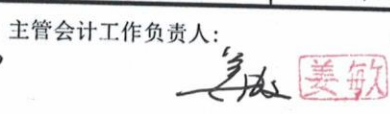 主管会计工作负责人：
姜敏 姜敏